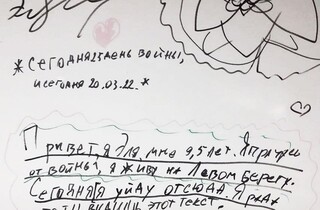 *Сегодня 25 день войны,
и сегодня 20.03.22.*
Привет я Эля, мне 9,5 лет.
от войны, я живу на Левом берегу.
Сегодня я уйду отсюда. Я рада
этот текст.